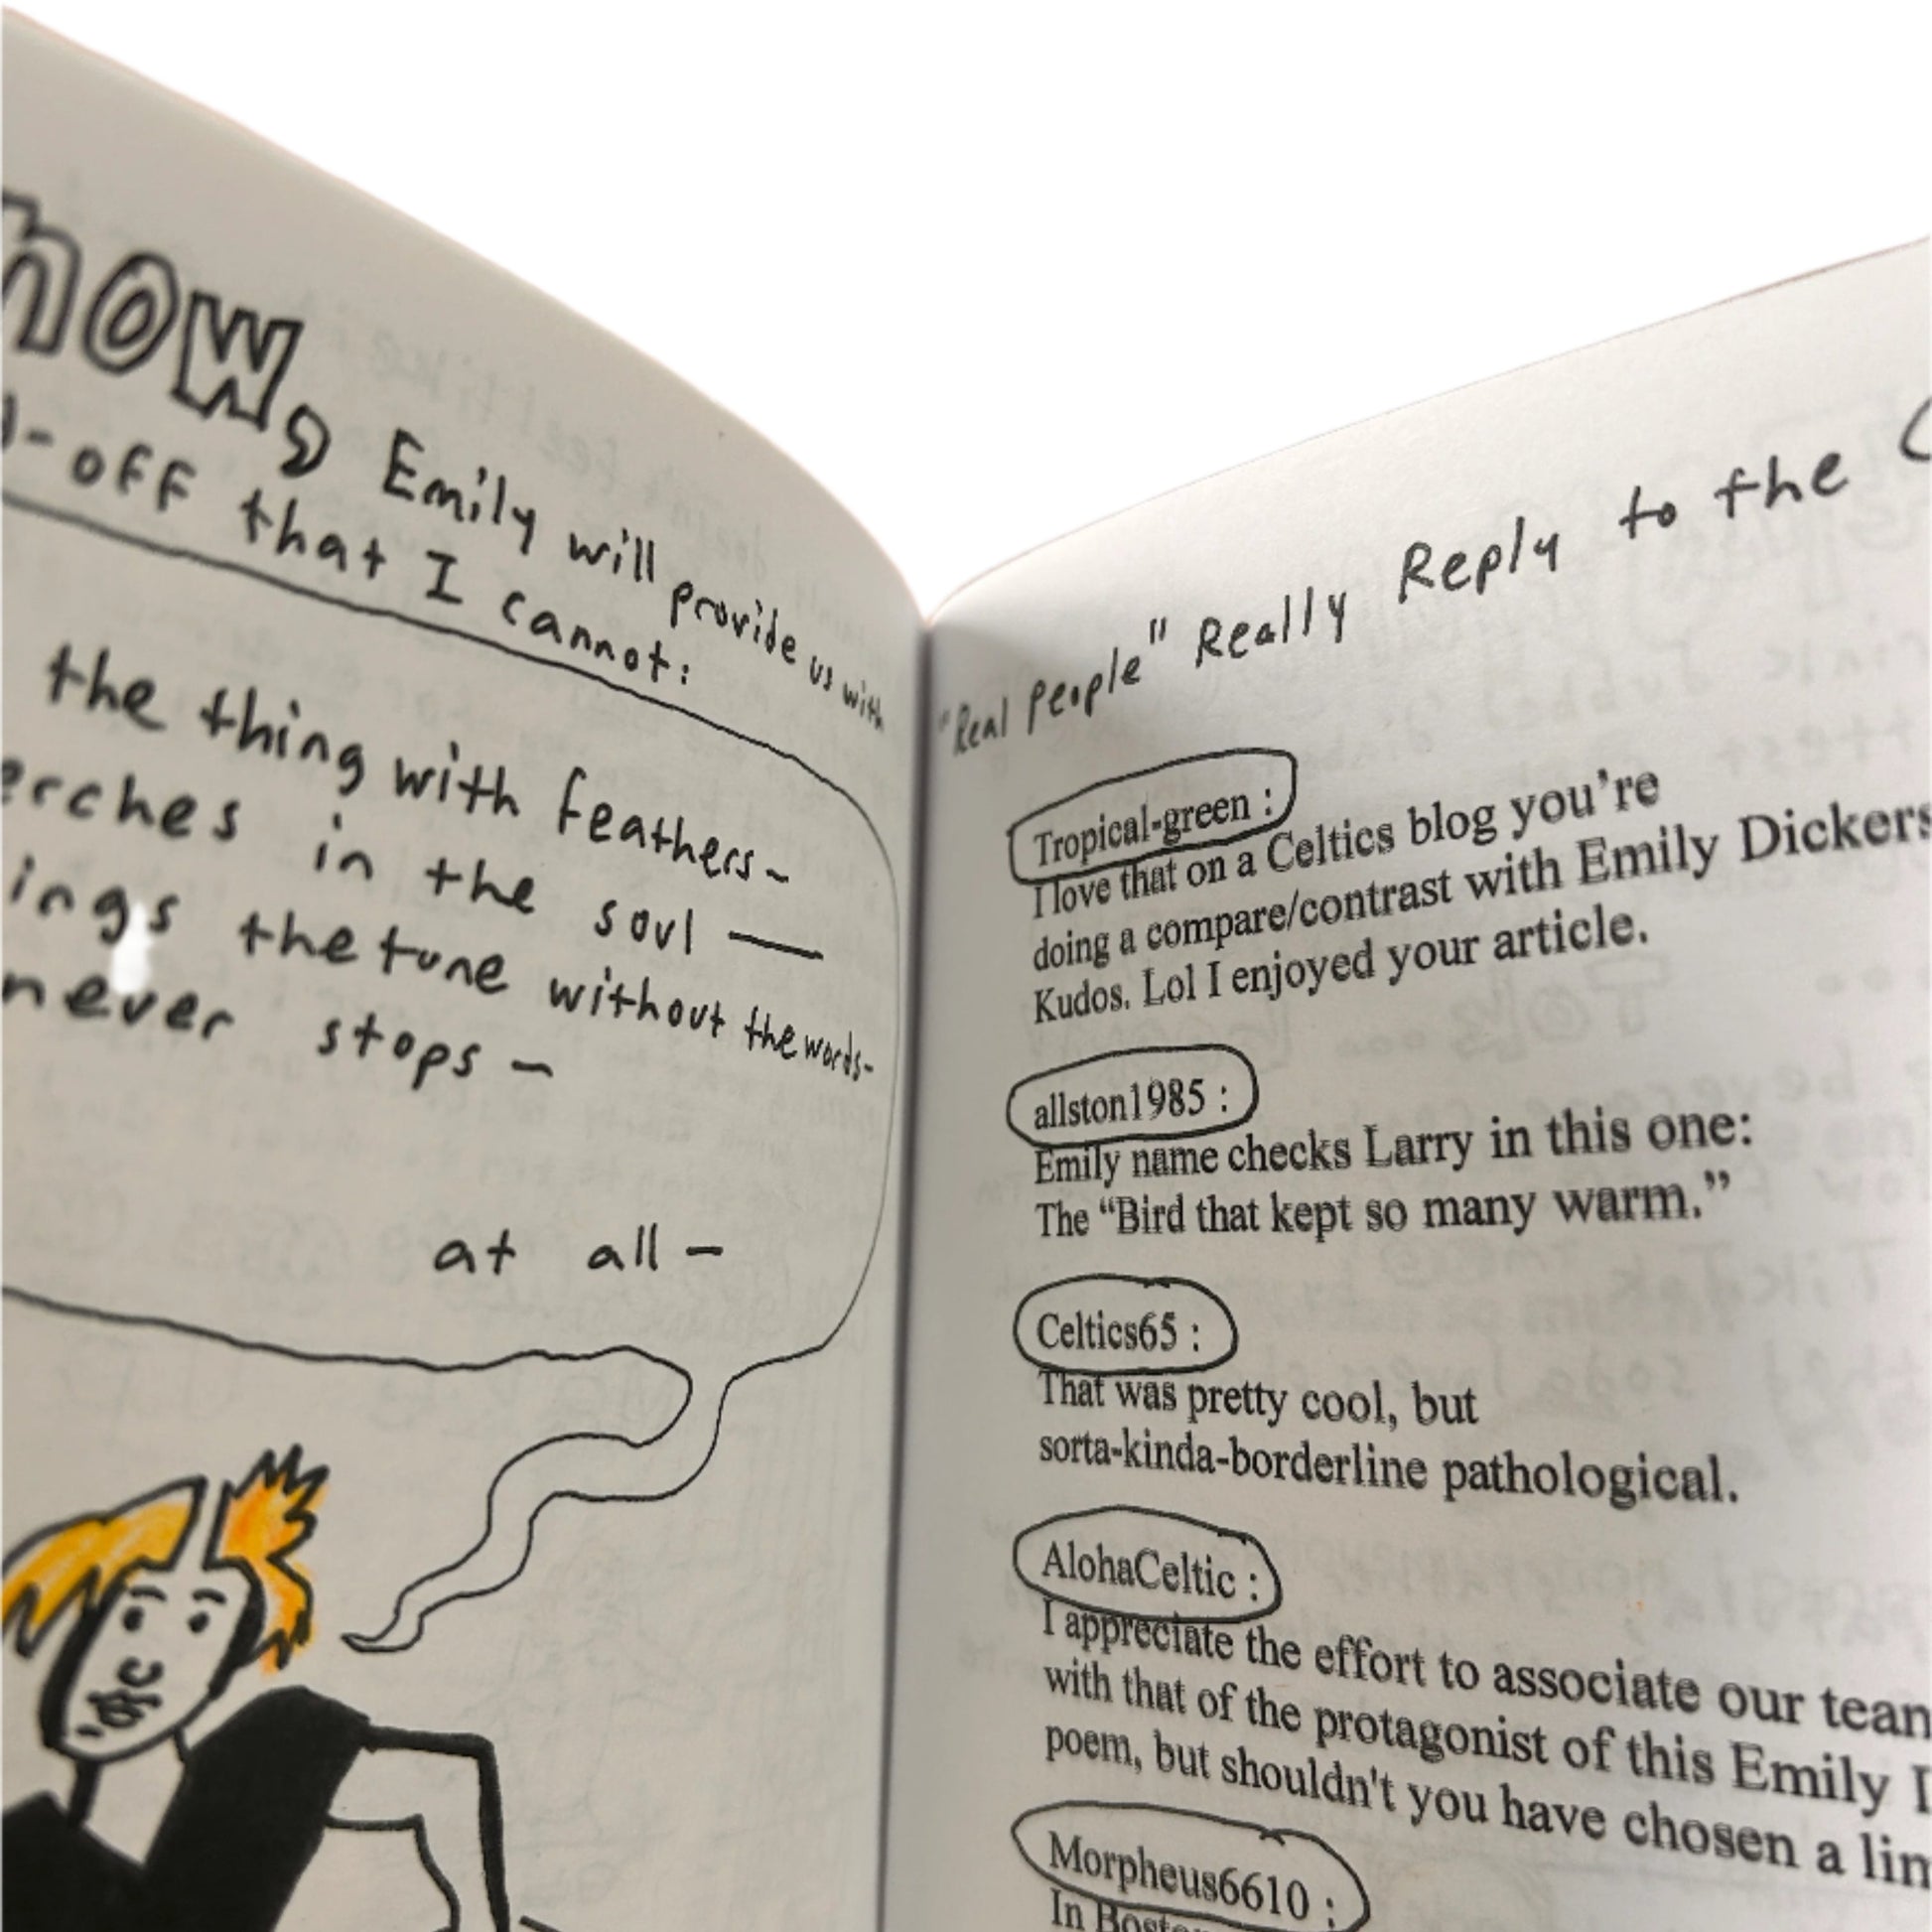 now, Emily will provide us with
-off that I cannot:
the thing with feathers-
erches in the soul —
ings the tune without the words-
never stops -
at all -
"Real People" Really Reply to the
Tropical-green :
I love that on a Celtics blog you're
doing a compare/contrast with Emily Dickers
Kudos. Lol I enjoyed your article.
allston1985 :
Emily name checks Larry in this one:
The “Bird that kept so many warm.”
Celtics65 :
That was pretty cool, but
sorta-kinda-borderline pathological.
AlohaCeltic :
I appreciate the effort to associate our team
with that of the protagonist of this Emily
poem, but shouldn't you have chosen a lim
Morpheus6610 :
In Boston